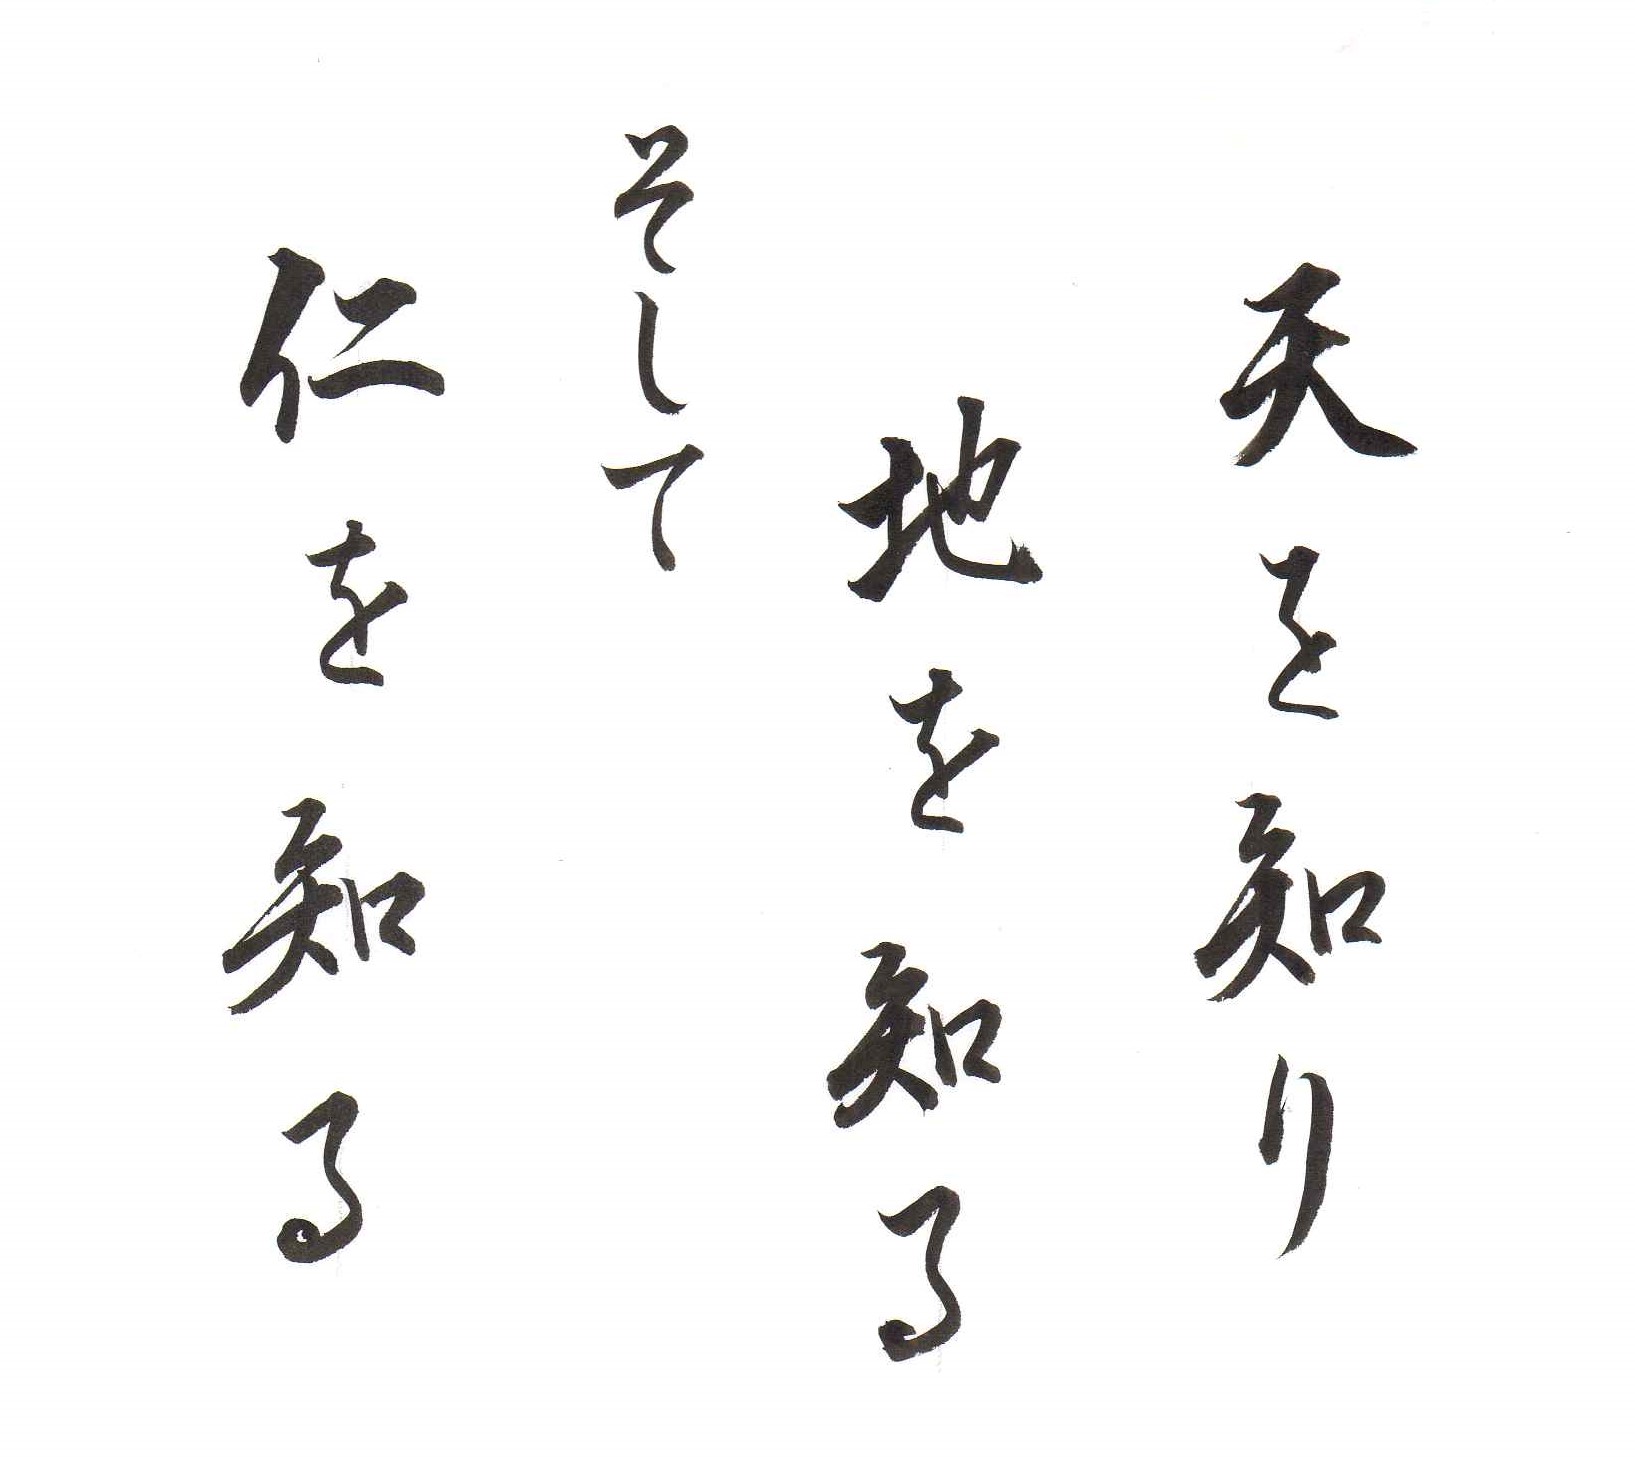 天を知り
地を知る
そして
仁を知る